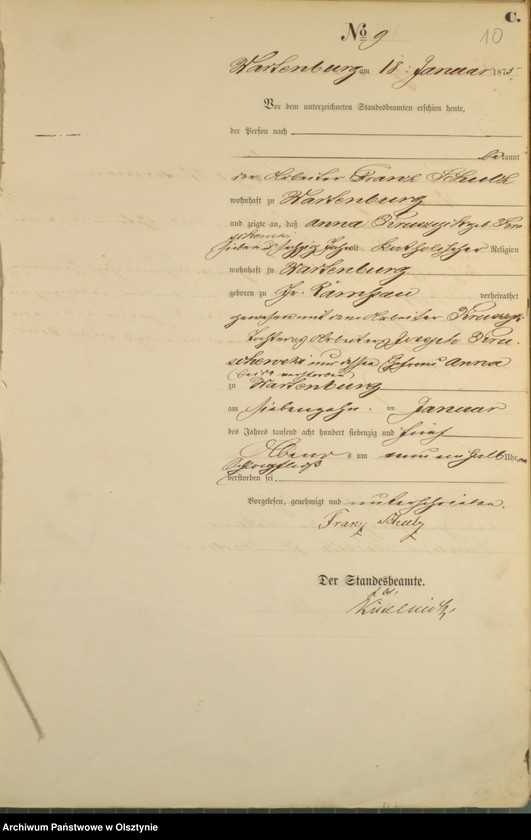 C.
No 9
10
Wartenburg am 18. Januar 1875.
Vor dem unterzeichneten Standesbeamten erschien heute,
der Person nach
bekannt
der Arbeiter Franz Schulz
wohnhaft zu Wartenburg
und zeigte an, daß Anna geb.
sieben u. sechzig Jahre alt katholischer Religion
wohnhaft zu Wartenburg
geboren zu Gr. verheirathet
gewesen mit dem Arbeiter
Tochter des Arbeiters Joseph
und dessen Ehefrau Anna
beide verstorben
zu Wartenburg
am siebenzehn. ten Januar
des Jahres tausend acht hundert siebenzig und fünf
Abends um neun ein halb Uhr an
Schlagfluß
verstorben sei.
Vorgelesen, genehmigt und unterschrieben.
Franz Schulz
Der Standesbeamte.
Archiwum Państwowe w Olsztynie